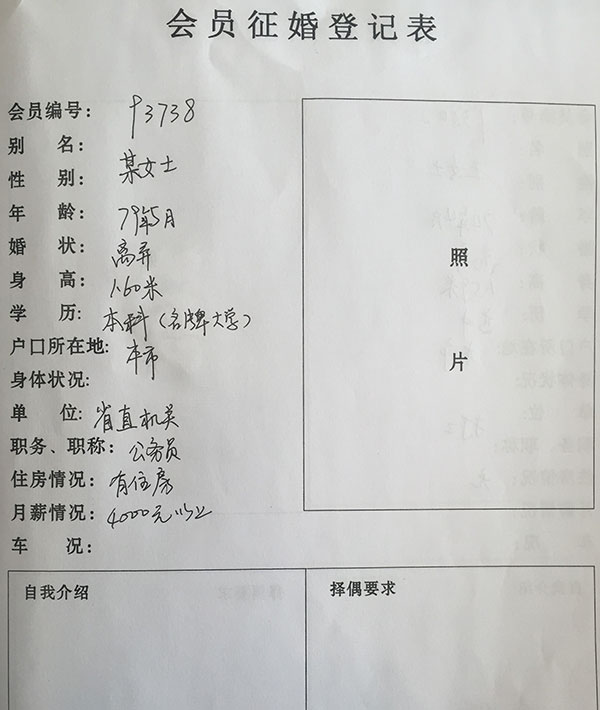 会员征婚登记表
会员编号： 93738
别 名：
性 别： 某女士
年 龄： 79年5月
婚 状： 离异
身 高： 1.60米
学 历： 本科（名牌大学）
户口所在地： 本市
身体状况：
单 位： 省直机关
职务、职称： 公务员
住房情况： 有住房
月薪情况： 4000元以上
车 况：
照
片
自我介绍
择偶要求